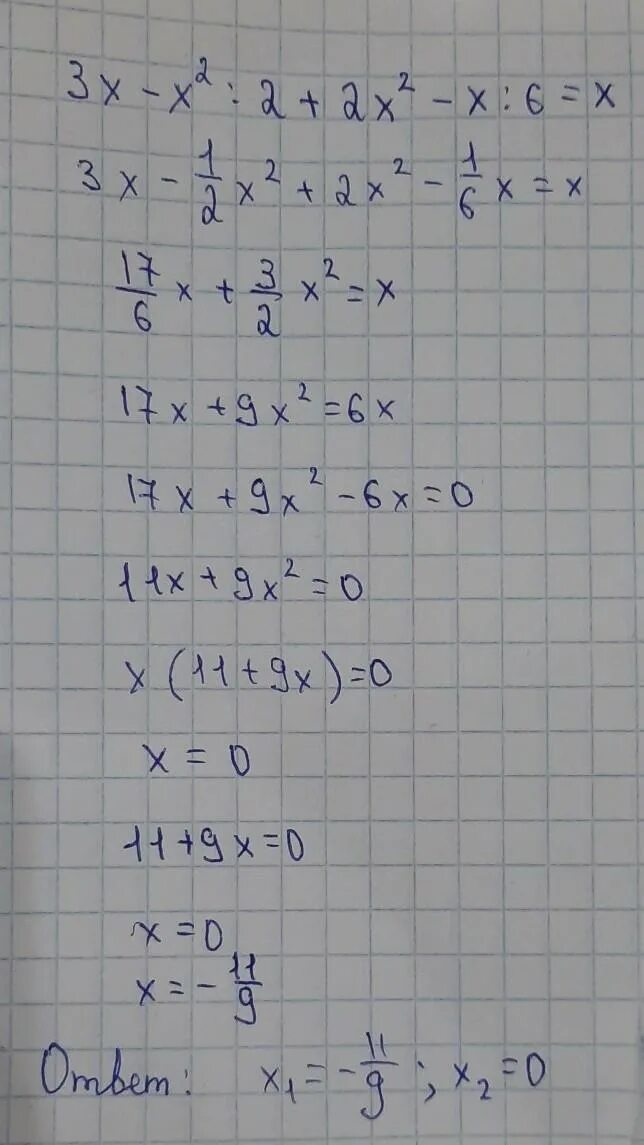 3x - x² : 2 + 2x² - x : 6 = x
3x - 1/2 x² + 2x² - 1/6 x = x
17/6 x + 3/2 x² = x
17x + 9x² = 6x
17x + 9x² - 6x = 0
11x + 9x² = 0
x (11 + 9x) = 0
x = 0
11 + 9x = 0
x = 0
x = - 11/9
Ответ: x₁ = - 11/9 ; x₂ = 0